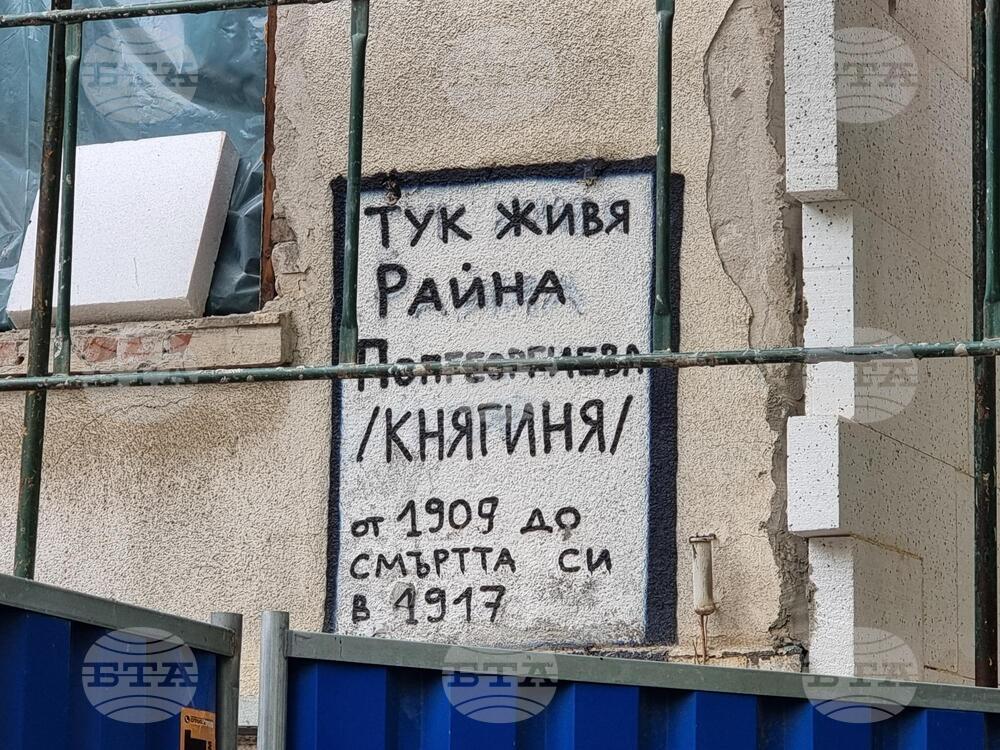 ТУК ЖИВЯ
РАЙНА
ПОПГЕОРГИЕВА
/КНЯГИНЯ/
от 1909 ДО
СМЪРТТА СИ
В 1917
БТА
БТА
БТА
БТА
БТА